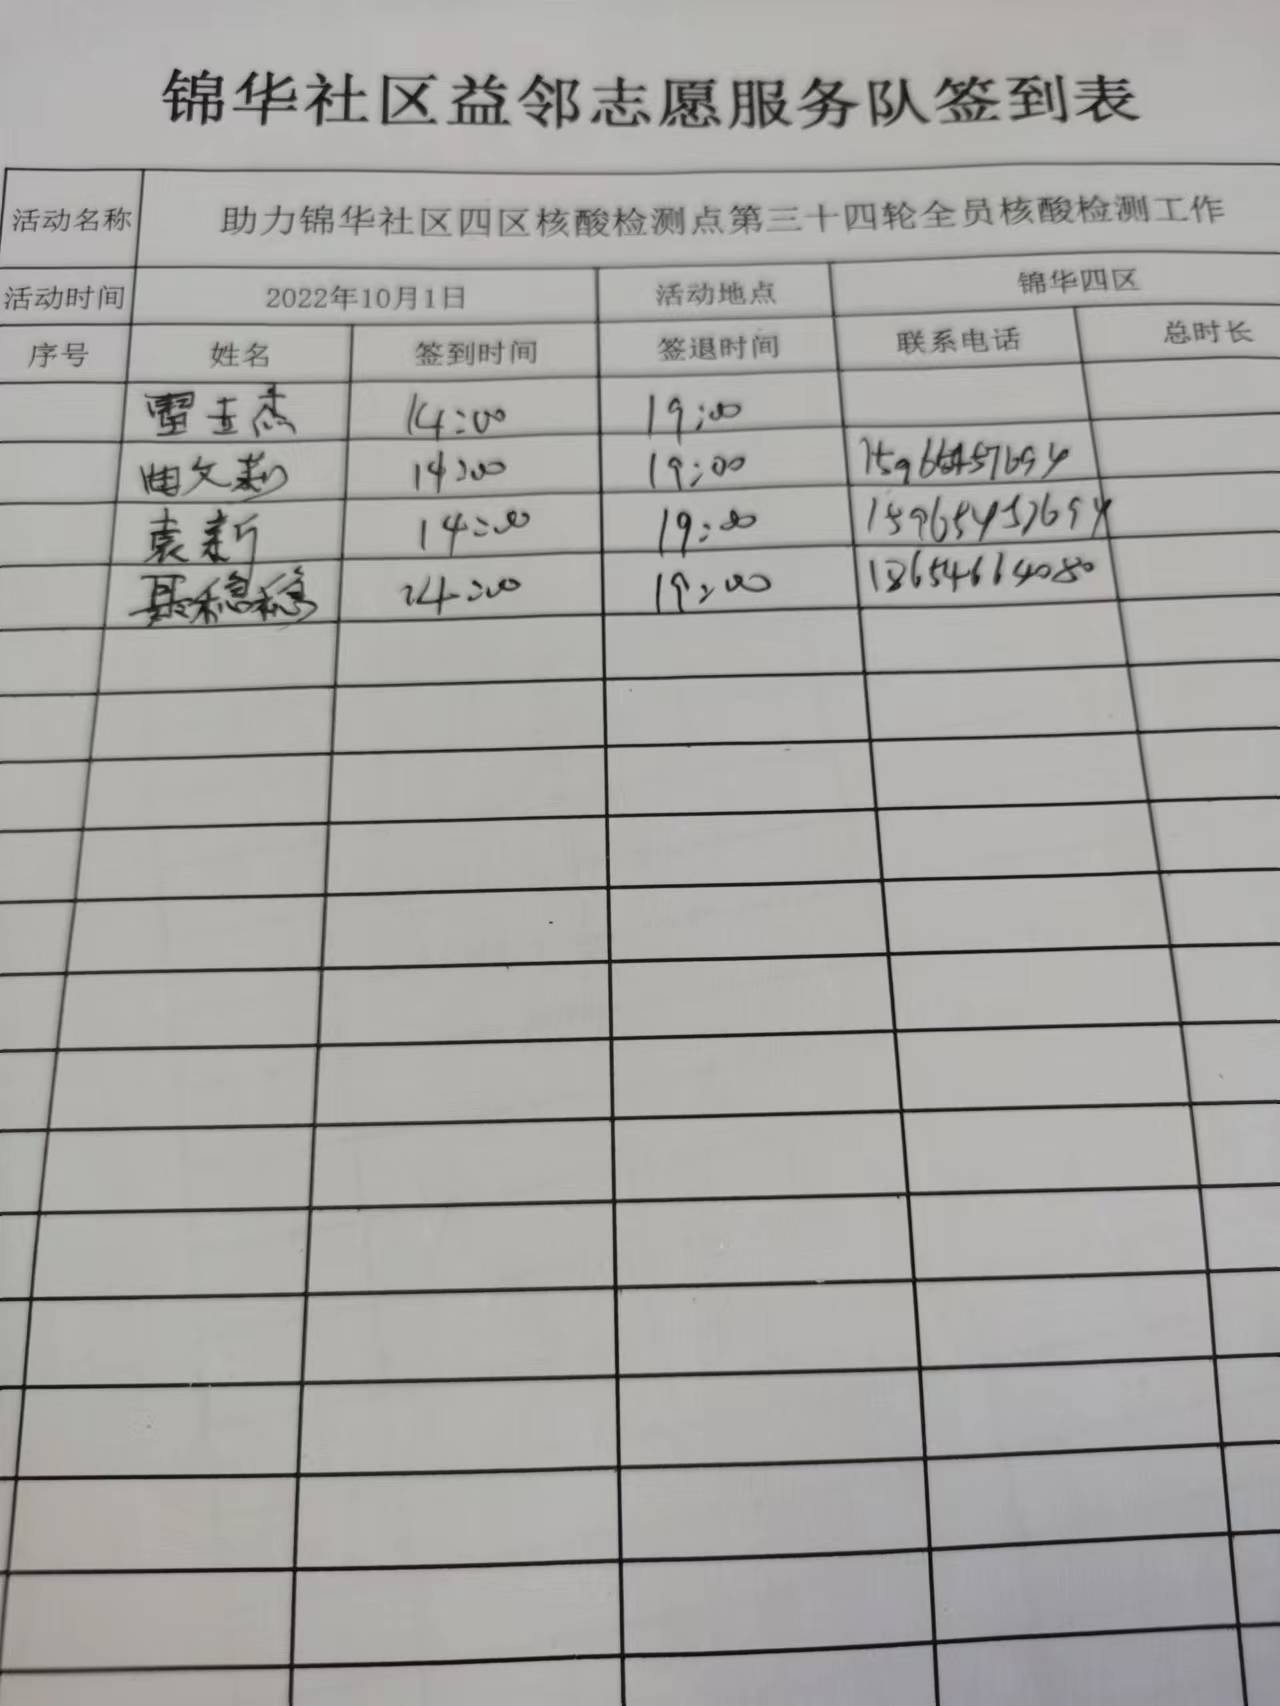 锦华社区益邻志愿服务队签到表
活动名称 助力锦华社区四区核酸检测点第三十四轮全员核酸检测工作
活动时间 2022年10月1日 活动地点 锦华四区
序号 姓名 签到时间 签退时间 联系电话 总时长
14:00 19:00
14:00 19:00
袁新 14:00 19:00 15965457694
聂稳稳 14:00 19:00 13654664080